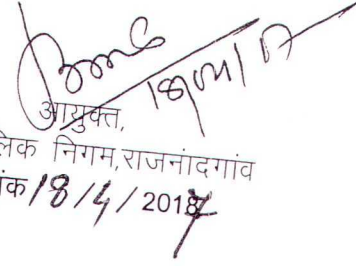 18/04/17
आयुक्त,
लिक निगम,राजनांदगांव
ांक 18/4/2017